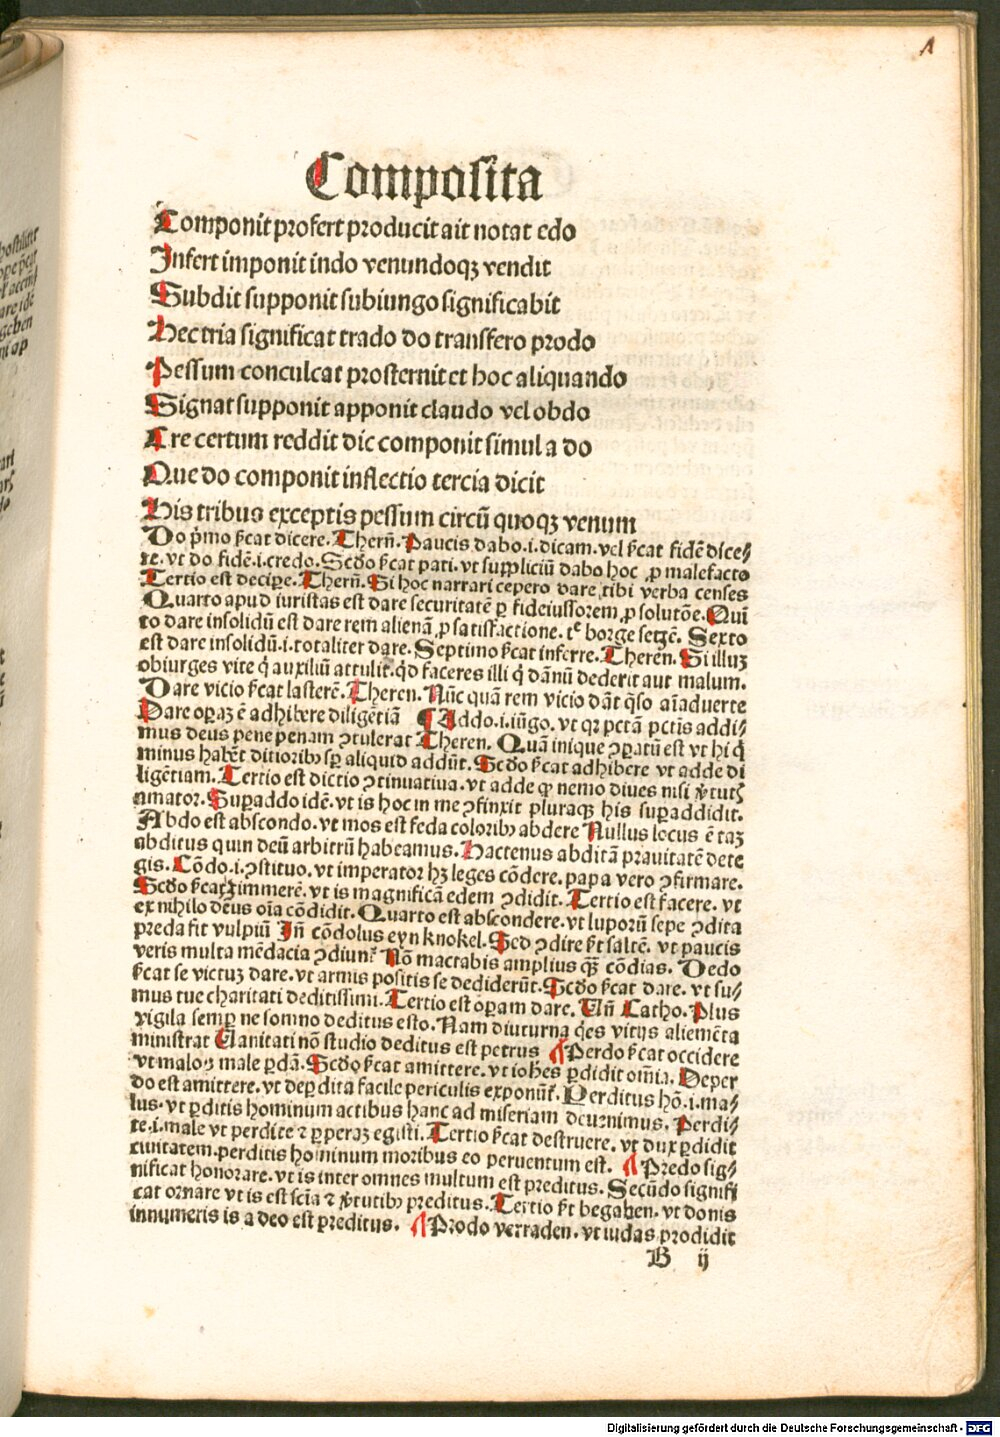 Composita
Componit profert producit ait notat edo
Infert imponit indo venundoqꝫ vendit
Subdit supponit subiungo significabit
Hec tria significat trado do transfero prodo
Pessum conculcat prosternit et hoc aliquando
Signat supponit apponit claudo vel obdo
Cre certum reddit dic componit simul a do
Que do componit inflectio tercia dicit
His tribus exceptis pessum circū quoqꝫ venum
Do p̄mo ſcat dicere. Thern̄. Paucis dabo .i. dicam. vel ſcat fidē dice/
re. vt do fidē .i. credo. Scḋo ſcat pati. vt suppliciū dabo hoc ꝓ malefacto
Tertio est decipe. Thern̄. Si hoc narrari cepero dare tibi verba censes
Quarto apud iuristas est dare securitatē ꝑ fideiussorem ꝓ solutōe. Qui
to dare insolidū est dare rem alienā ꝓ satisfactione. Sexto
est dare insolidū .i. totaliter dare. Septimo ſcat inferre. Theren. Si illuꝫ
obiurges vite q̄ auxiliū attulit. qd̄ faceres illi q̄ dānū dederit aut malum.
Dare vicio ſcat lasterē. Theren. Nūc quā rem vicio dāt q̄so aīaduerte
Dare oꝑaꝫ ē adhibere diligētiā ¶ Addo .i. iūgo. vt qꝛ pctā pctis addi
mus deus pene penam ꝯtulerat Theren. Quā inique ꝯꝑatū est vt hi q̄
minus habēt ditiorib⁹ sꝑ aliquid addūt. Scḋo ſcat adhibere vt adde di
ligētiam. Tertio est dictio ꝯtinuatiua. vt adde ꝙ nemo diues nisi
amator. Suꝑaddo idē. vt is hoc in me ꝯfinxit pluraqꝫ his suꝑaddidit.
Abdo est abscondo. vt mos est feda colorib⁹ abdere Nullus locus ē taꝫ
abditus quin deū arbitrū habeamus. Hactenus abditā prauitatē dete
gis. Cōdo .i. ꝯstituo. vt imperator hꝫ leges cōdere. papa vero ꝯfirmare.
Scḋo ſcat zimmerē. vt is magnificā edem ꝯdidit. Tertio est facere. vt
ex nihilo deus oīa cōdidit. Quarto est abscondere. vt luporū sepe ꝯdita
preda fit vulpiū In̄ cōdolus eyn knokel. Sed ꝯdire ſt saltē. vt paucis
veris multa mēdacia ꝯdiunt Nō mactabis amplius cōdias. Dedo
ſcat se victuꝫ dare. vt armis positis se dediderūt. Scḋo ſcat dare. vt su/
mus tue charitati deditissimi. Tertio est oꝑam dare. Un̄ Catho. Plus
vigila semꝑ ne somno deditus esto. Nam diuturna q̄es vitijs alimēta
ministrat Uanitati nō studio deditus est petrus ¶ Perdo ſcat occidere
vt malos male ꝑdā. Scḋo ſcat amittere. vt iohēs ꝑdidit omīa. Deper
do est amittere. vt deꝑdita facile periculis exponūt. Perditus hō .i. ma/
lus. vt ꝑditis hominum actibus hanc ad miseriam deuenimus. Perdi/
te .i. male vt perdite ⁊ ꝑperaꝫ egisti. Tertio ſcat destruere. vt dux ꝑdidit
ciuitatem. perditis hominum moribus eo peruentum est. ¶ Predo sig/
nificat honorare. vt is inter omnes multum est preditus. Secūdo signifi
cat ornare vt is est scīa ⁊ preditus. Tertio ſt begaben. vt donis
innumeris is a deo est preditus. ¶ Prodo verraden. vt iudas prodidit
B ij
Digitalisierung gefördert durch die Deutsche Forschungsgemeinschaft - DFG